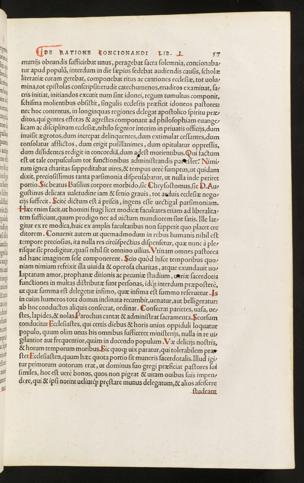 DE RATIONE CONCIONANDI LIB. I. 57
munijs obeundis sufficiebat unus, peragebat sacra solemnia, concionaba-
tur apud populũ, interdum in die sæpius sedebat audiendis causis, scholæ
literariæ curam gerebat, componebat ritus ac cantiones ecclesiæ, tot uolu-
mina, tot epistolas conscripsit, erudit catechumenos, eruditos examinat, sa-
cris initiat, initiandos excutit num sint idonei, regum tumultus componit,
schisma molientibus obsistit, singulis ecclesijs præficit idoneos pastores:
nec hoc contentus, in longinquas regiones delegat apostolico spiritu præ-
ditos, qui gentes efferas & agrestes componant ad philosophiam euange-
licam ac disciplinam ecclesiæ, nihilo segnior interim in priuatis officijs, dum
inuisit ægrotos, dum increpat delinquentes, dum castimulat cessantes, dum
consolatur afflictos, dum erigit pusillanimes, dum opitulatur oppressis,
dum dissidentes redigit in concordiã, dum adest morientibus. Qui factum
est ut tale corpusculum tot functionibus administrandis par esset? Nimi-
rum ignea charitas suppeditabat uires, & tempus uere sumptum, ut quidam
dixit, preciosissimus tanta parsimonia dispensabatur, ut nulla inde periret
portio. Sic beatus Basilius corpore morbido, sic Chrysostomus, sic D. Au-
gustinus delicata ualetudine iam & senio grauis, tot tamen ecclesiæ nego-
cijs suffecit. Scite dictum est à priscis, ingens esse uectigal parsimoniam.
Hæc enim facit, ut homini frugi licet modicæ facultates etiam ad liberalita-
tem sufficiant, quum prodigo nec ad uictum mundiorem sint satis. Ille lar-
gitur ex re modica, huic ex amplis facultatibus non suppetit quo placet cre-
ditorem. Conuenit autem ut quemadmodum in rebus humanis nihil est
tempore preciosius, ita nulla res circũspectius dispensetur, quæ nunc à ple-
risque sic prodigitur, quasi nihil se omnino uilius. Vtinam omnes pastores
ad hanc imaginem sese componerent. Scio quòd huius temporibus quo-
niam nimium refrixit illa uiuida & operosa charitas, atque exundant uo-
luptatum amor, prophanæ distiones ac pecuniæ studium, cætera sacerdotij
functiones in multas distribuitur personas, idque interdum præposterè,
ut quæ summa est delegetur infimo, quæ infima est summo reseruatur. Is
in cuius humeros tota domus inclinata recumbit, uenatur, aut belligeratur:
ab hoc conductus aliquis consecrat, ordinat. Consecrat parietes, uasa, ue-
stes, lapides, & nolas, Parochus curat & administrat sacramenta. Seorsum
conducitur Ecclesiastes, qui certis diebus & horis unius oppiduli loquatur
populo, quum olim unus his omnibus sufficeret ministerijs, nulla in re ui-
gilantior aut frequentior, quàm in docendo populum. Væ delicijs nostris,
& horum temporum moribus. Sic quoque uix paratur, qui tolerabilem præ-
stet Ecclesiasten, quum hæc quota portio sit muneris sacerdotalis. Illud igi-
tur primorum uotorum erat, ut dominus suo gregi præficiat pastores soi
similes, hoc est uerè bonos, quos non pigeat & uitam ouibus suis impen-
dere, qui & ipsi norint utiliterque præstare munus delegatum, & alios asciscere
studeant